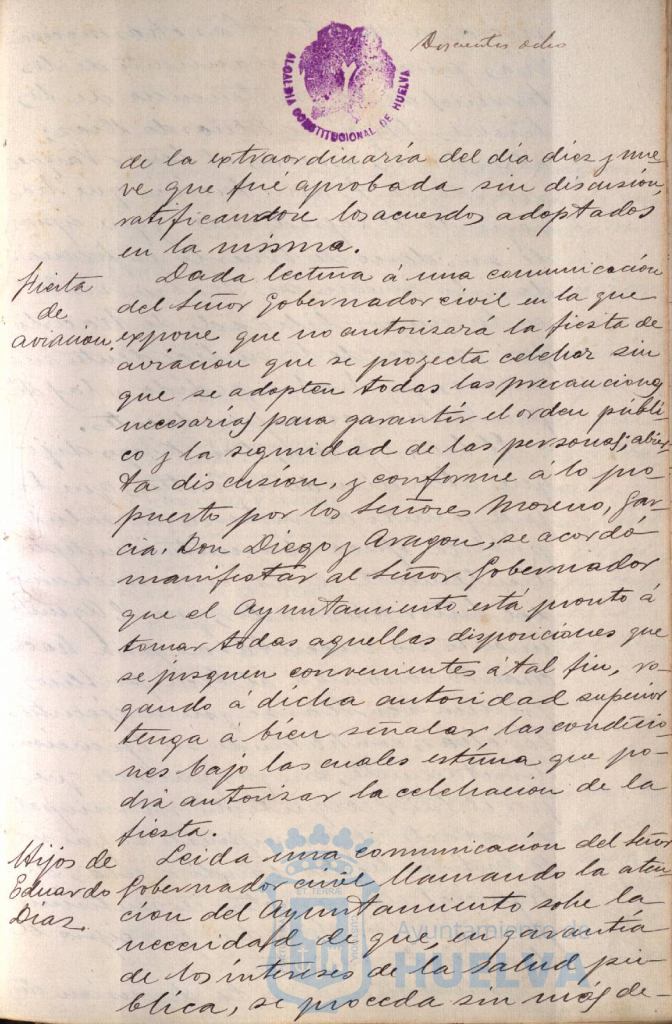 Doscientos ocho
ALCALDIA CONSTITUCIONAL DE HUELVA
de la extraordinaria del día diez y nue
ve que fué aprobada sin discusión,
ratificandose los acuerdos adoptados
en la misma.
Fiesta
de
aviación.
Dada lectura á una comunicación
del Señor Gobernador civil en la que
expone que no autorizará la fiesta de
aviación que se proyecta celebrar sin
que se adopten todas las precauciones
necesarias para garantir el orden públi
co y la seguridad de las personas; abier
ta discusión, y conforme á lo pro-
puesto por los Señores Moreno, Gar-
cia, Don Diego y Aragon, se acordó
manifestar al Señor Gobernador
que el Ayuntamiento está pronto á
tomar todas aquellas disposiciones que
se juzguen convenientes á tal fin, ro-
gando á dicha autoridad superior
tenga á bien señalar las condicio-
nes bajo las cuales estima que po-
drá autorizar la celebracion de la
fiesta.
Hijos de
Eduardo
Diaz.
Leida una comunicación del Señor
Gobernador civil llamando la aten
cion del Ayuntamiento sobe la
necesidad de que, en garantía
de los intereses de la salud pú-
blica, se proceda sin más de-
Ayuntamiento de
HUELVA